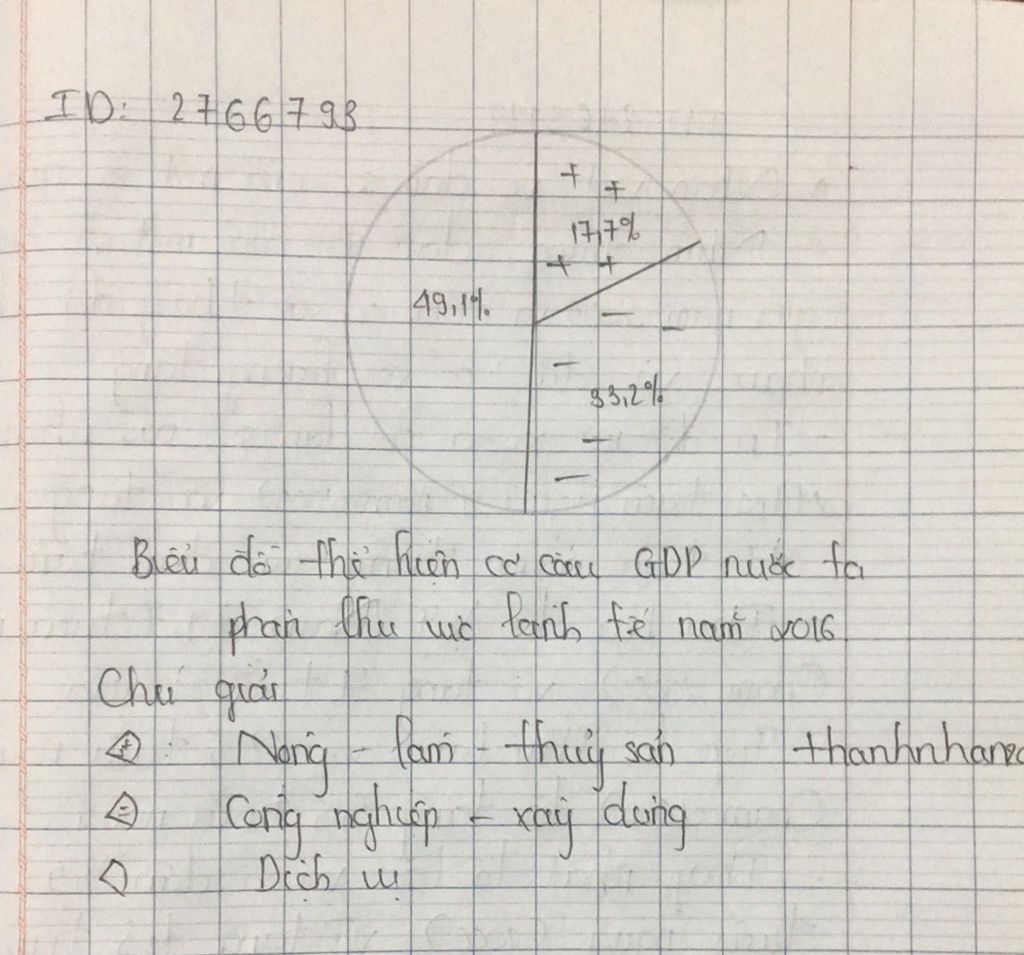 ID: 2766793
+ +
17,7%
+ +
49,1%
33,2%
Biểu đồ thể hiện cơ cấu GDP nước ta
phân khu vực kinh tế năm 2016
Chú giải
+ : Nông - lâm - thuỷ sản thanhnhan
- Công nghiệp - xây dựng
Dịch vụ